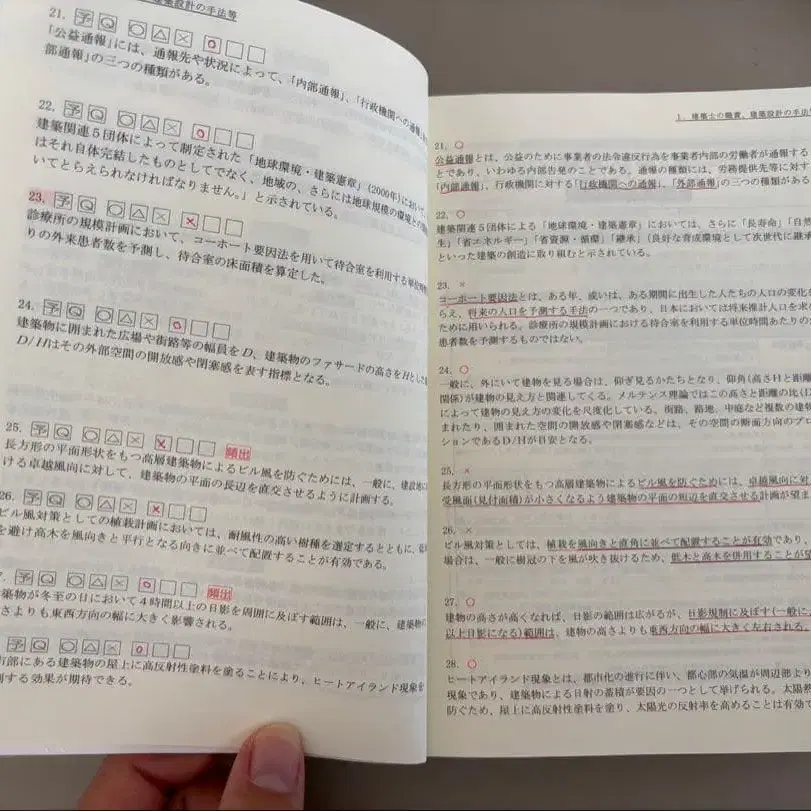 建築設計の手法等
21. 予 Q ○ △ ×
「公益通報」には、通報先や状況によって、「内部通報」、「行政機関への通報」、
部通報」の三つの種類がある。
22. 予 Q ○ △ ×
建築関連5団体によって制定された「地球環境・建築憲章」(2000年)において、
はそれ自体完結したものとしてでなく、地域の、さらには地球規模の環境との
いてとらえられなければなりません。」と示されている。
23. 予 Q ○ △ ×
診療所の規模計画において、コーホート要因法を用いて待合室を利用する単位時間
りの外来患者数を予測し、待合室の床面積を算定した。
24. 予 Q ○ △ ×
建築物に囲まれた広場や街路等の幅員をD、建築物のファサードの高さをHとした
D/Hはその外部空間の開放感や閉塞感を表す指標となる。
25. 予 Q ○ △ × 頻出
長方形の平面形状をもつ高層建築物によるビル風を防ぐためには、一般に、建設地に
ける卓越風向に対して、建築物の平面の長辺を直交させるように計画する。
26. 予 Q ○ △ ×
ビル風対策としての植栽計画においては、耐風性の高い樹種を選定するとともに、
を避け高木を風向きと平行となる向きに並べて配置することが有効である。
7. 予 Q ○ △ × 頻出
築物が冬至の日において4時間以上の日影を周囲に及ぼす範囲は、一般に、建築物の
さよりも東西方向の幅に大きく影響される。
予 Q ○ △ ×
市部にある建築物の屋上に高反射性塗料を塗ることにより、ヒートアイランド現象を
制する効果が期待できる。
1. 建築士の職責、建築設計の手法
21. ○
公益通報とは、公益のために事業者の法令違反行為を事業者内部の労働者が通報する
とであり、いわゆる内部告発のことである。通報の種類には、労務提供先等に対す
「内部通報」、行政機関に対する「行政機関への通報」、「外部通報」の三つの種類がある
22. ○
建築関連5団体による「地球環境・建築憲章」においては、さらに「長寿命」「自然
生」「省エネルギー」「省資源・循環」「継承」「良好な育成環境として次世代に継承
といった建築の創造に取り組むと示されている。
23. ×
コーホート要因法とは、ある年、或いは、ある期間に出生した人たちの人口の変化を
らえ、将来の人口を予測する手法の一つであり、日本においては将来推計人口を求
ために用いられる。診療所の規模計画における待合室を利用する単位時間あたりの
患者数を予測するものではない。
24. ○
一般に、外にいて建物を見る場合は、仰ぎ見るかたちとなり、仰角(高さHと距離
関係)が建物の見え方と関連してくる。メルテンス理論ではこの高さと距離の比(D
によって建物の見え方の変化を尺度化している。街路、路地、中庭など複数の建物
まれたり、囲まれた空間の開放感や閉塞感などは、その空間の断面方向のプロ
ションであるD/Hが目安となる。
25. ×
長方形の平面形状をもつ高層建築物によるビル風を防ぐためには、卓越風向に対
受風面(見付面積)が小さくなるよう建築物の平面の短辺を直交させる計画が望ま
26. ×
ビル風対策としては、植栽を風向きと直角に並べて配置することが有効であり、
場合は、一般に樹冠の下を風が吹き抜けるため、低木と高木を併用することが望
27. ○
建物の高さが高くなれば、日影の範囲は広がるが、日影規制に及ぼす(一般に
以上日影になる)範囲は、建物の高さよりも東西方向の幅に大きく左右される。
28. ○
ヒートアイランド現象とは、都市化の進行に伴い、都心部の気温が周辺部より
現象であり、建築物による日射の蓄積が要因の一つとして挙げられる。太陽熱
防ぐため、屋上に高反射性塗料を塗り、太陽光の反射率を高めることは有効で